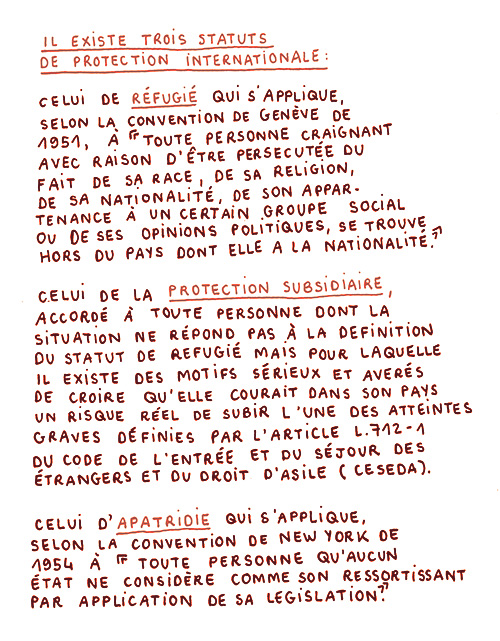 IL EXISTE TROIS STATUTS
DE PROTECTION INTERNATIONALE:
CELUI DE RÉFUGIÉ QUI S'APPLIQUE,
SELON LA CONVENTION DE GENÈVE DE
1951, À "TOUTE PERSONNE CRAIGNANT
AVEC RAISON D'ÊTRE PERSECUTÉE DU
FAIT DE SA RACE, DE SA RELIGION,
DE SA NATIONALITÉ, DE SON APPAR-
TENANCE À UN CERTAIN GROUPE SOCIAL
OU DE SES OPINIONS POLITIQUES, SE TROUVE
HORS DU PAYS DONT ELLE A LA NATIONALITÉ."
CELUI DE LA PROTECTION SUBSIDIAIRE,
ACCORDÉ À TOUTE PERSONNE DONT LA
SITUATION NE RÉPOND PAS À LA DEFINITION
DU STATUT DE REFUGIÉ MAIS POUR LAQUELLE
IL EXISTE DES MOTIFS SÉRIEUX ET AVERÉS
DE CROIRE QU'ELLE COURAIT DANS SON PAYS
UN RISQUE RÉEL DE SUBIR L'UNE DES ATTEINTES
GRAVES DÉFINIES PAR L'ARTICLE L.712-1
DU CODE DE L'ENTRÉE ET DU SÉJOUR DES
ÉTRANGERS ET DU DROIT D'ASILE (CESEDA).
CELUI D'APATRIDIE QUI S'APPLIQUE,
SELON LA CONVENTION DE NEW YORK DE
1954 À "TOUTE PERSONNE QU'AUCUN
ÉTAT NE CONSIDÈRE COMME SON RESSORTISSANT
PAR APPLICATION DE SA LEGISLATION."